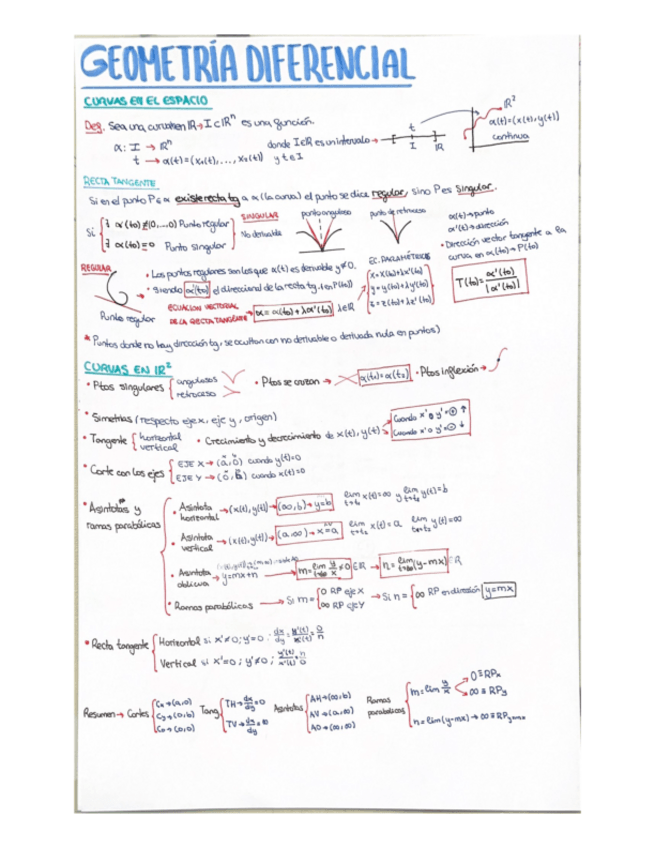 GEOMETRÍA DIFERENCIAL
CURVAS EN EL ESPACIO
Def. Sea una curva en IR → I ⊂ IRⁿ es una función.
α: I → IRⁿ donde I∈IR es un intervalo →
t → α(t) = (x₁(t), ..., xₙ(t)) y t∈I
t
I IR
IR²
α(t)=(x(t), y(t))
continua
RECTA TANGENTE
Si en el punto P∈α existe recta tg a α (la curva) el punto se dice regular, sino P es singular.
Si { ∃ α'(t₀) ≠ (0,...,0) Punto regular
∃ α'(t₀) = 0 Punto singular
SINGULAR
No derivable
punto anguloso
punto de retroceso
α(t) → punto
α'(t) → dirección
• Dirección vector tangente a la
curva en α(t₀) → P(t₀)
T(t₀) = α'(t₀) / |α'(t₀)|
REGULAR
Punto regular
• Los puntos regulares son los que α(t) es derivable y ≠ 0.
• Siendo α'(t₀) el direccional de la recta tg.
ECUACIÓN VECTORIAL
DE LA RECTA TANGENTE → α = α(t₀) + λα'(t₀) λ∈IR
EC. PARAMÉTRICAS
x = x(t₀)+λx'(t₀)
y = y(t₀)+λy'(t₀)
z = z(t₀)+λz'(t₀)
* Puntos donde no hay dirección tg, se ocultan con no derivable o derivada nula en puntos)
CURVAS EN IR²
• Ptos singulares { angulosos
retroceso
• Ptos se cruzan → α(t₁)=α(t₂)
• Ptos inflexión →
• Simetrías (respecto eje x, eje y, origen)
• Tangente { horizontal
vertical
• Crecimiento y decrecimiento de x(t), y(t)
Cuando x' o y' = ⊕ ↑
Cuando x' o y' = ⊖ ↓
• Corte con los ejes { EJE X → (a,0) cuando y(t)=0
EJE Y → (0,b) cuando x(t)=0
• Asíntotas y
ramas parabólicas
• Asíntota horizontal → (x(t), y(t)) → (∞,b) → y=b lim x(t)=∞ y lim y(t)=b
• Asíntota vertical → (x(t), y(t)) → (a,∞) → x=a lim x(t)=a lim y(t)=∞
• Asíntota oblicua → y=mx+n → m = lim y/x ≠ 0 ∈IR → n = lim (y-mx) ∈IR
• Ramas parabólicas → Si m = { 0 RP eje X
∞ RP eje Y
→ Si n = { ∞ RP en dirección y=mx
• Recta tangente { Horizontal si x'≠0; y'=0
Vertical si x'=0; y'≠0
Resumen → Cortes { Cx → (a,0)
Cy → (0,b)
Co → (0,0)
Tang { TH →
TV →
Asíntotas { AH → (∞,b)
AV → (a,∞)
AO → (∞,∞)
Ramas
parabólicas
m = lim y/x → 0 ≡ RPx
∞ ≡ RPy
n = lim (y-mx) → ∞ ≡ RP y=mx